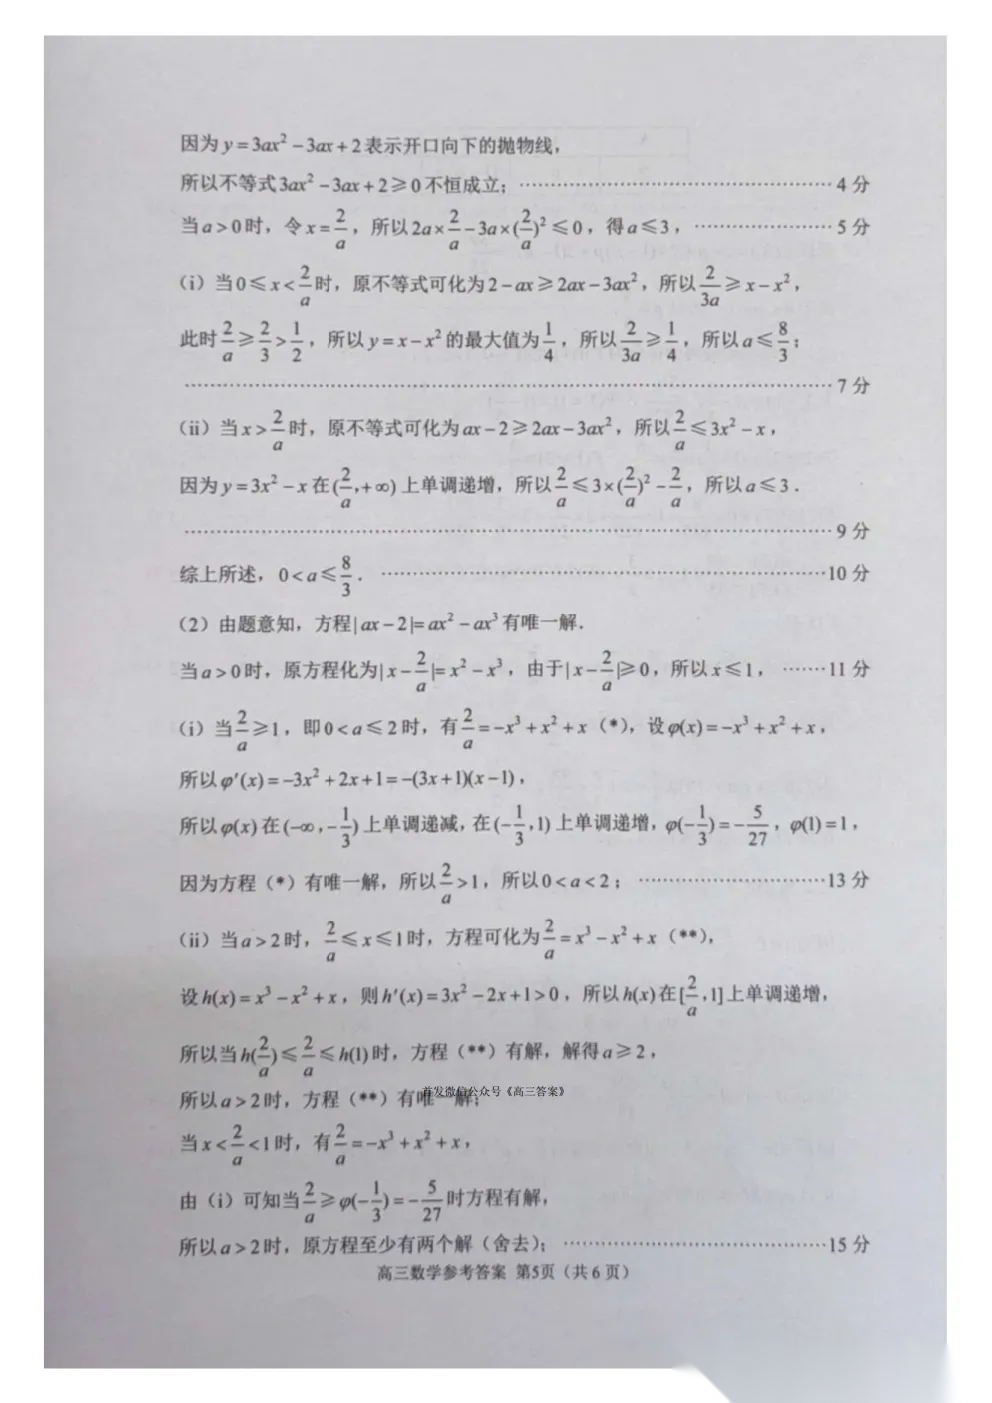 因为 y = 3ax² − 3ax + 2 表示开口向下的抛物线,
所以不等式 3ax² − 3ax + 2 ≥ 0 不恒成立; ………… 4 分
当 a > 0 时, 令 x = 2/a , 所以 2a × 2/a − 3a × (2/a)² ≤ 0 , 得 a ≤ 3 , ………… 5 分
(i) 当 0 ≤ x < 2/a 时, 原不等式可化为 2 − ax ≥ 2ax − 3ax² , 所以 2/3a ≥ x − x² ,
此时 2/a ≥ 2/3 > 1/2 , 所以 y = x − x² 的最大值为 1/4 , 所以 2/3a ≥ 1/4 , 所以 a ≤ 8/3 ;
………… 7 分
(ii) 当 x > 2/a 时, 原不等式可化为 ax − 2 ≥ 2ax − 3ax² , 所以 2/a ≤ 3x² − x ,
因为 y = 3x² − x 在 (2/a , +∞) 上单调递增, 所以 2/a ≤ 3 × (2/a)² − 2/a , 所以 a ≤ 3 .
………… 9 分
综上所述, 0 < a ≤ 8/3 . ………… 10 分
(2) 由题意知, 方程 | ax − 2 |= ax² − ax³ 有唯一解.
当 a > 0 时, 原方程化为 | x − 2/a |= x² − x³ , 由于 | x − 2/a |≥ 0 , 所以 x ≤ 1 , ……11 分
(i) 当 2/a ≥ 1 , 即 0 < a ≤ 2 时, 有 2/a = −x³ + x² + x (*), 设 φ(x) = −x³ + x² + x ,
所以 φ′(x) = −3x² + 2x + 1 = −(3x + 1)(x − 1) ,
所以 φ(x) 在 (−∞ , −1/3) 上单调递减, 在 (−1/3 , 1) 上单调递增, φ(−1/3) = −5/27 , φ(1) = 1 ,
因为方程 (*) 有唯一解, 所以 2/a > 1 , 所以 0 < a < 2 ; …………13 分
(ii) 当 a > 2 时, 2/a ≤ x ≤ 1 时, 方程可化为 2/a = x³ − x² + x (**),
设 h(x) = x³ − x² + x , 则 h′(x) = 3x² − 2x + 1 > 0 , 所以 h(x) 在 [2/a , 1] 上单调递增,
所以当 h(2/a) ≤ 2/a ≤ h(1) 时, 方程 (**) 有解, 解得 a ≥ 2 ,
首发微信公众号《高三答案》
所以 a > 2 时, 方程 (**) 有唯一解;
当 x < 2/a < 1 时, 有 2/a = −x³ + x² + x ,
由 (i) 可知当 2/a ≥ φ(−1/3) = −5/27 时方程有解,
所以 a > 2 时, 原方程至少有两个解 (舍去); …………15 分
高三数学参考答案 第5页 (共 6 页)